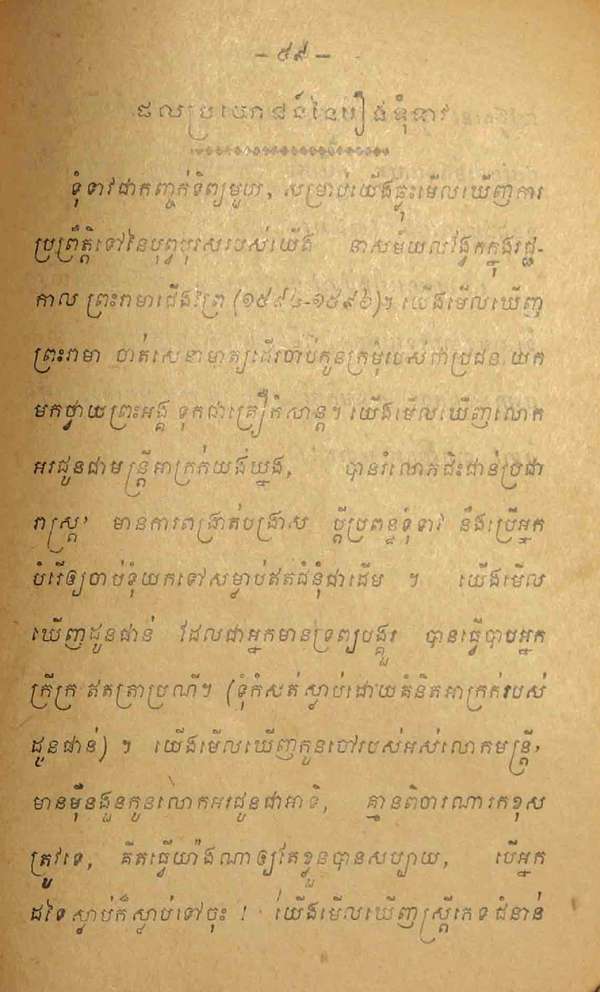 - ៥៩ -
ផលប្រយោជន៍នៃរឿងទុំទាវ
ទុំទាវជាកញ្ចក់ទិព្យមួយ, សម្រាប់យើងឆ្លុះមើលឃើញការ
ប្រព្រឹត្តិទៅនៃបុព្វបុរសរបស់យើង នាសម័យលង្វែកក្នុងរជ្ជ-
កាល ព្រះរាមាជើងព្រៃ (១៥៩៤-១៥៩៦)។ យើងមើលឃើញ
ព្រះរាមា ចាត់សេនាមាត្យដើរចាប់កូនក្រមុំរបស់ប្រជាជន យក
មកថ្វាយព្រះអង្គ ទុកជាគ្រឿងសាន្ត។ យើងមើលឃើញលោក
អរជូនជាមន្ត្រីអាក្រក់យង់ឃ្នង, បានរំលោភជិះជាន់ប្រជា
រាស្ត្រ, មានការពង្រាត់បង្រាស ប្ដីប្រពន្ធទុំទាវ នឹងប្រើអ្នក
បំរើឲ្យចាប់ទុំយកទៅសម្លាប់ឥតជំនុំជាដើម ។ យើងមើល
ឃើញដូនជាន់ ដែលជាអ្នកមានទ្រព្យបង្គួរ បានធ្វើបាបអ្នក
ក្រីក្រ ឥតត្រាប្រណី។ (ទុំកំសត់ស្លាប់ដោយគំនិតអាក្រក់របស់
ដូនជាន់) ។ យើងមើលឃើញកូនចៅរបស់អស់លោកមន្ត្រី,
មានម៉ឺនងួនកូនលោកអរជូនជាអាទិ, គ្មានពិចារណារកខុស
ត្រូវទេ, គិតធ្វើយ៉ាងណាឲ្យតែខ្លួនបានសប្បាយ, បើអ្នក
ដទៃស្លាប់ក៏ស្លាប់ទៅចុះ ! យើងមើលឃើញស្ត្រីភេទជំនាន់